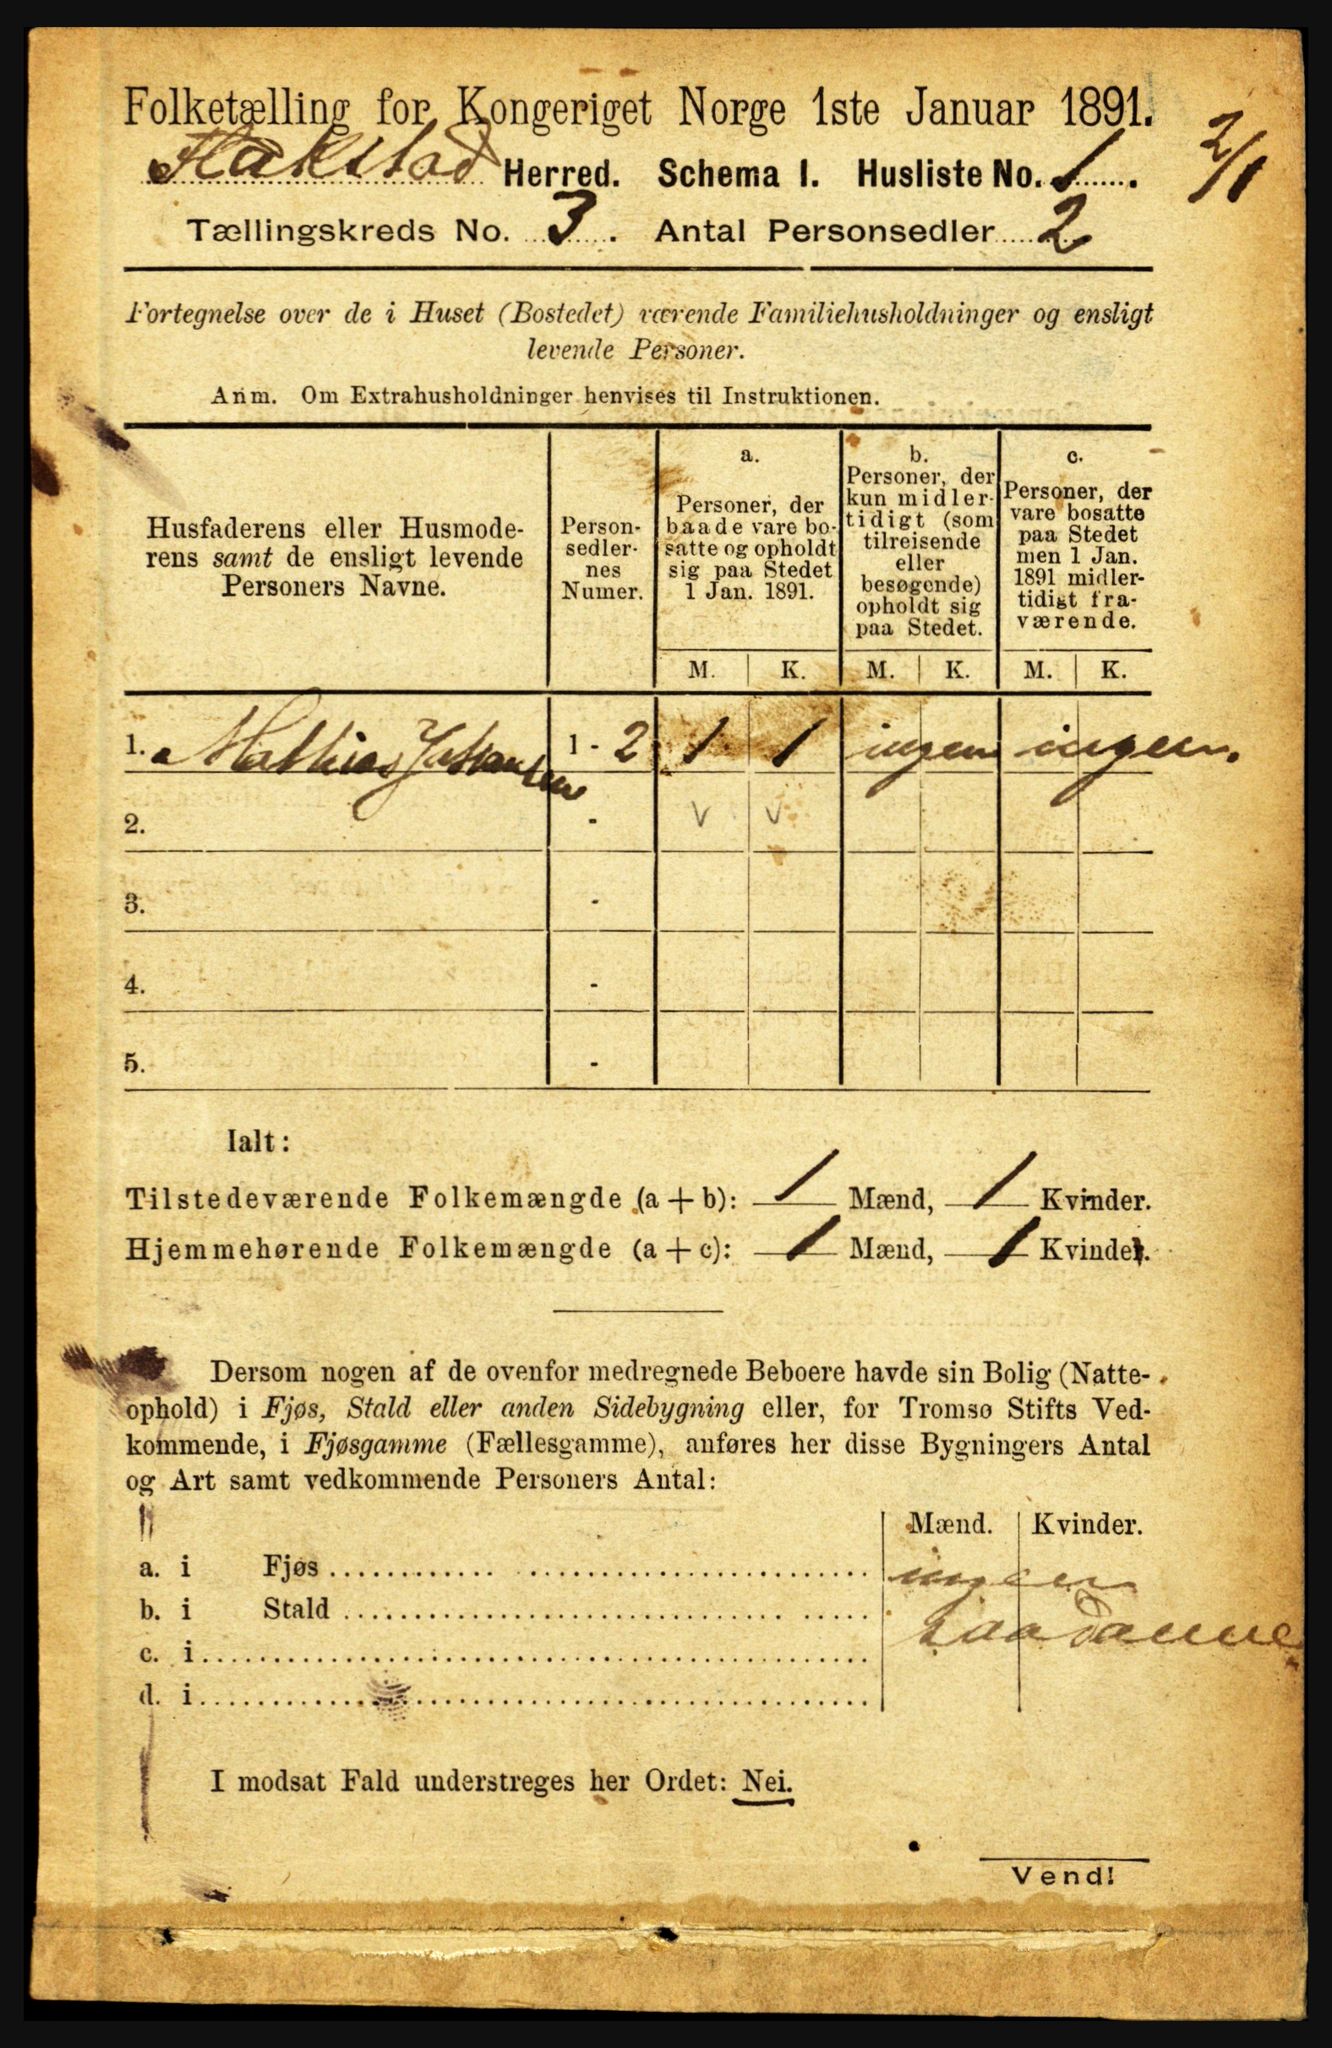 Folketælling for Kongeriget Norge 1ste Januar 1891.
2/1
Flakstad Herred. Schema I. Husliste No. 1.
Tællingskreds No. 3. Antal Personsedler 2
Fortegnelse over de i Huset (Bostedet) værende Familiehusholdninger og ensligt
levende Personer.
Anm. Om Extrahusholdninger henvises til Instruktionen.
Husfaderens eller Husmode-
rens samt de ensligt levende
Personers Navne.
Person-
sedler-
nes
Numer.
a.
Personer, der
baade vare bo-
satte og opholdt
sig paa Stedet
1 Jan. 1891.
b.
Personer, der
kun midler-
tidigt (som
tilreisende
eller
besøgende)
opholdt sig
paa Stedet.
c.
Personer, der
vare bosatte
paa Stedet
men 1 Jan.
1891 midler-
tidigt fra-
værende.
M. K. M. K. M. K.
1. Mathias Johansen 1 - 2 1 1 ingen ingen.
2. - v v
3. -
4. -
5. -
Ialt:
Tilstedeværende Folkemængde (a + b): 1 Mænd, 1 Kvinder.
Hjemmehørende Folkemængde (a + c): 1 Mænd, 1 Kvinder.
Dersom nogen af de ovenfor medregnede Beboere havde sin Bolig (Natte-
ophold) i Fjøs, Stald eller anden Sidebygning eller, for Tromsø Stifts Ved-
kommende, i Fjøsgamme (Fællesgamme), anføres her disse Bygningers Antal
og Art samt vedkommende Personers Antal:
Mænd. Kvinder.
a. i Fjøs ingen
b. i Stald saadanne
c. i
d. i
I modsat Fald understreges her Ordet: Nei.
Vend!